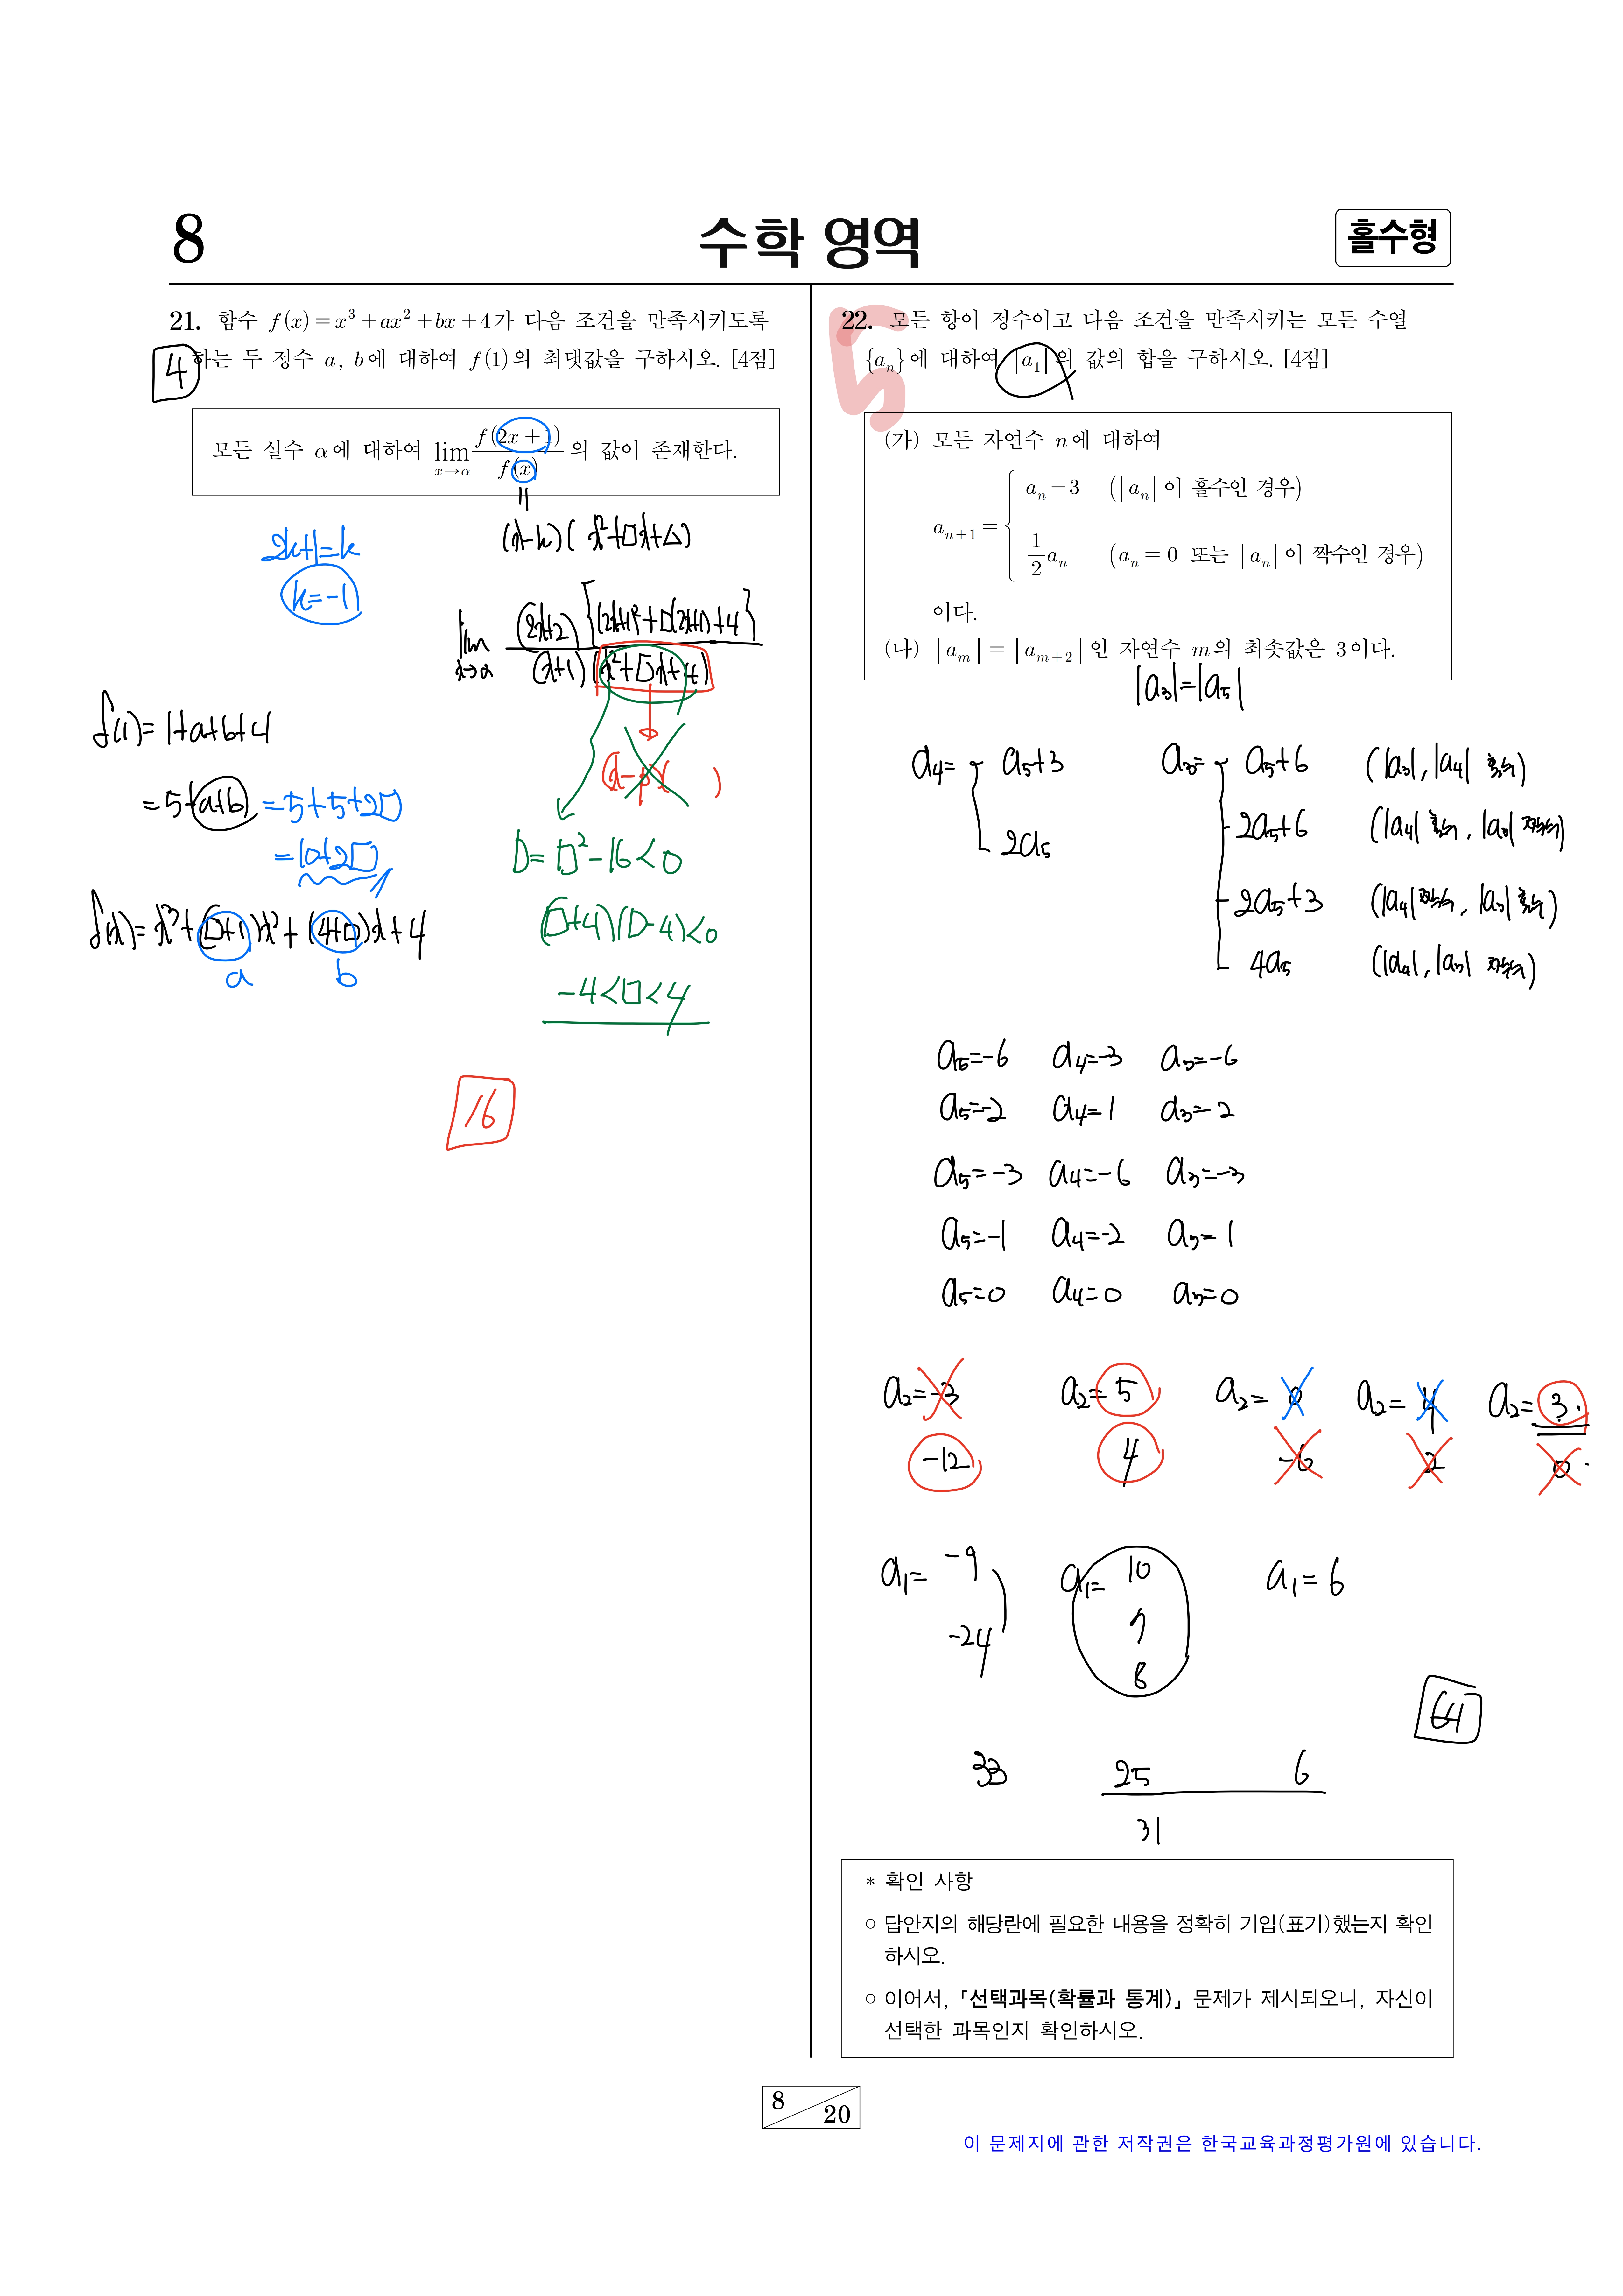 8
수학 영역
홀수형
21. 함수 f(x)=x³+ax²+bx+4가 다음 조건을 만족시키도록
하는 두 정수 a, b에 대하여 f(1)의 최댓값을 구하시오. [4점]
4
모든 실수 α에 대하여 lim_{x→α} f(2x+1)/f(x) 의 값이 존재한다.
॥
(x-k)(x²+□x+△)
2k+1=k
k=-1
lim_{x→α} (2x+2){(2x+1)²+□(2x+1)+4}/(x+1)(x²+□x+4)
(x-p)( )
f(1)=1+a+b+4
=5+a+b=5+5+2□
=10+2□
D=□²-16<0
(□+4)(□-4)<0
f(x)=x³+(□+1)x²+(4+□)x+4
a b
-4<□<4
16
22. 모든 항이 정수이고 다음 조건을 만족시키는 모든 수열
{aₙ}에 대하여 |a₁|의 값의 합을 구하시오. [4점]
5
(가) 모든 자연수 n에 대하여
aₙ₊₁ = { aₙ-3 (|aₙ|이 홀수인 경우)
½aₙ (aₙ=0 또는 |aₙ|이 짝수인 경우)
이다.
(나) |aₘ|=|aₘ₊₂|인 자연수 m의 최솟값은 3이다.
|a₃|=|a₅|
a₄= a₅+3
2a₅
a₃= a₅+6 (|a₃|, |a₄| 홀수)
2a₅+6 (|a₄| 홀수, |a₃| 짝수)
2a₅+3 (|a₄| 짝수, |a₃| 홀수)
4a₅ (|a₄|, |a₃| 짝수)
a₅=-6 a₄=-3 a₃=-6
a₅=-2 a₄=1 a₃=2
a₅=-3 a₄=-6 a₃=-3
a₅=-1 a₄=-2 a₃=1
a₅=0 a₄=0 a₃=0
a₂=-3 a₂=5 a₂=0 a₂=4 a₂=3
-12 4 -6 2 0
a₁= -9 a₁= 10 a₁=6
-24 7
8
64
33 25 6
31
* 확인 사항
○ 답안지의 해당란에 필요한 내용을 정확히 기입(표기)했는지 확인
하시오.
○ 이어서, 「선택과목(확률과 통계)」 문제가 제시되오니, 자신이
선택한 과목인지 확인하시오.
8
20
이 문제지에 관한 저작권은 한국교육과정평가원에 있습니다.